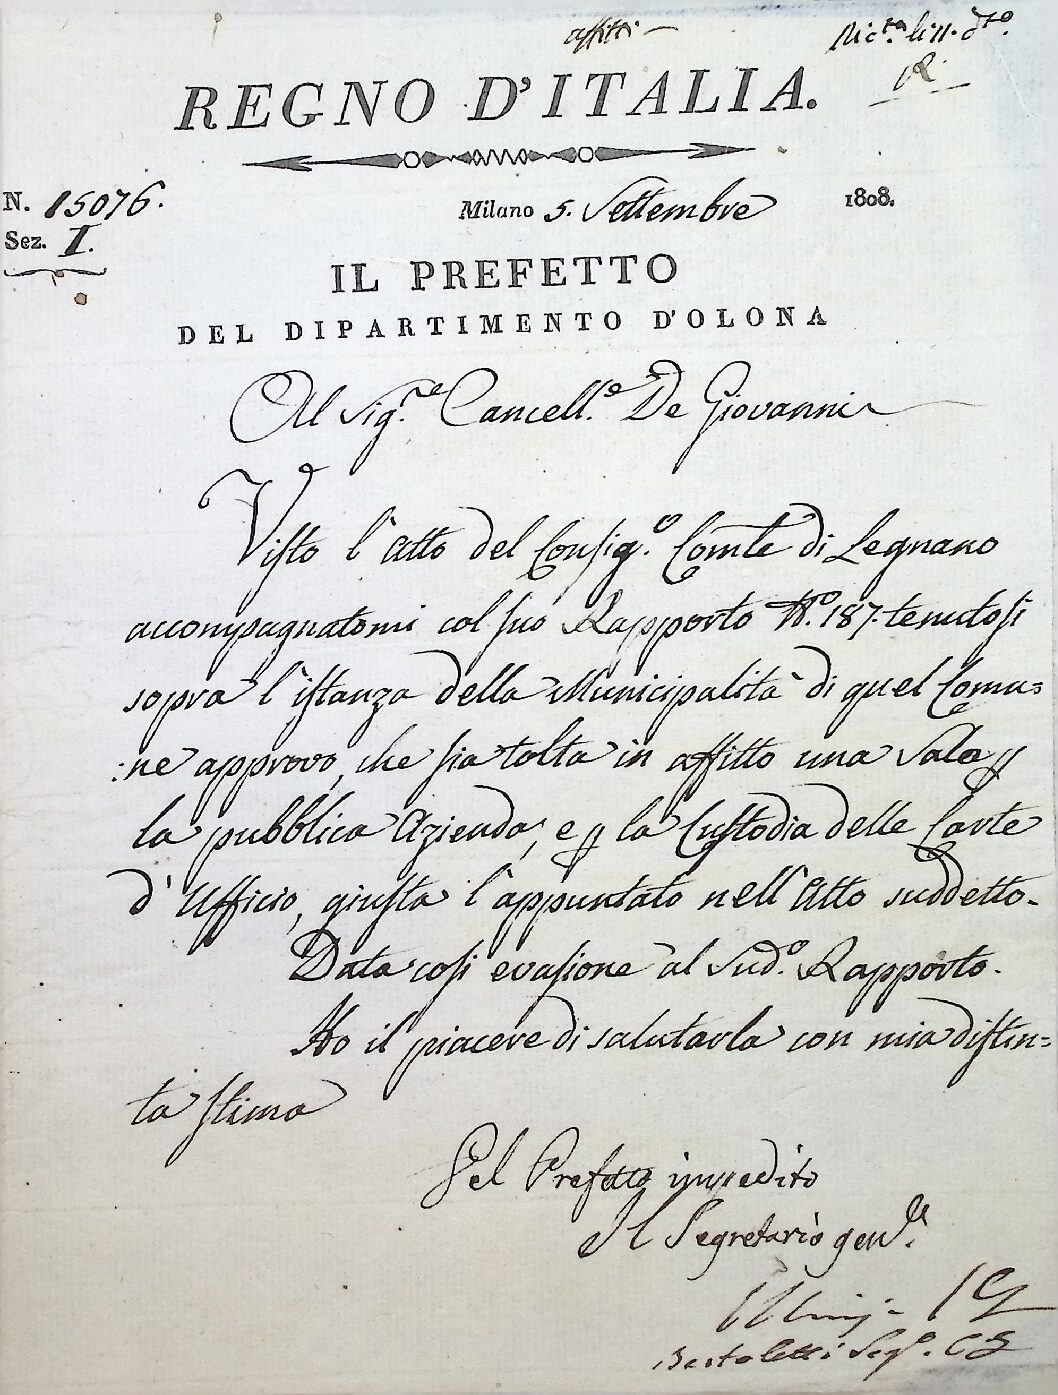 affitti
Ric.ta li 11. d.to
R
REGNO D'ITALIA.
N. 15076.
Milano 5. Settembre 1808.
Sez. I.
IL PREFETTO
DEL DIPARTIMENTO D'OLONA
Al Sig.re Cancell.e De Giovanni
Visto l'Atto del Consig.o Comle di Legnano
accompagnatomi col suo Rapporto N.o 187. tenutosi
sopra l'istanza della Municipalità di quel Comu=
:ne approvo, che sia tolta in affitto una Sala p
la pubblica Azienda, e p la Custodia delle Carte
d'Ufficio, giusta l'appuntato nell'Atto suddetto.
Data così evasione al Sud.o Rapporto.
Ho il piacere di salutarla con mia distin=
ta stima
Pel Prefetto impedito
Il Segretario gen.le
Bertoletti Seg.